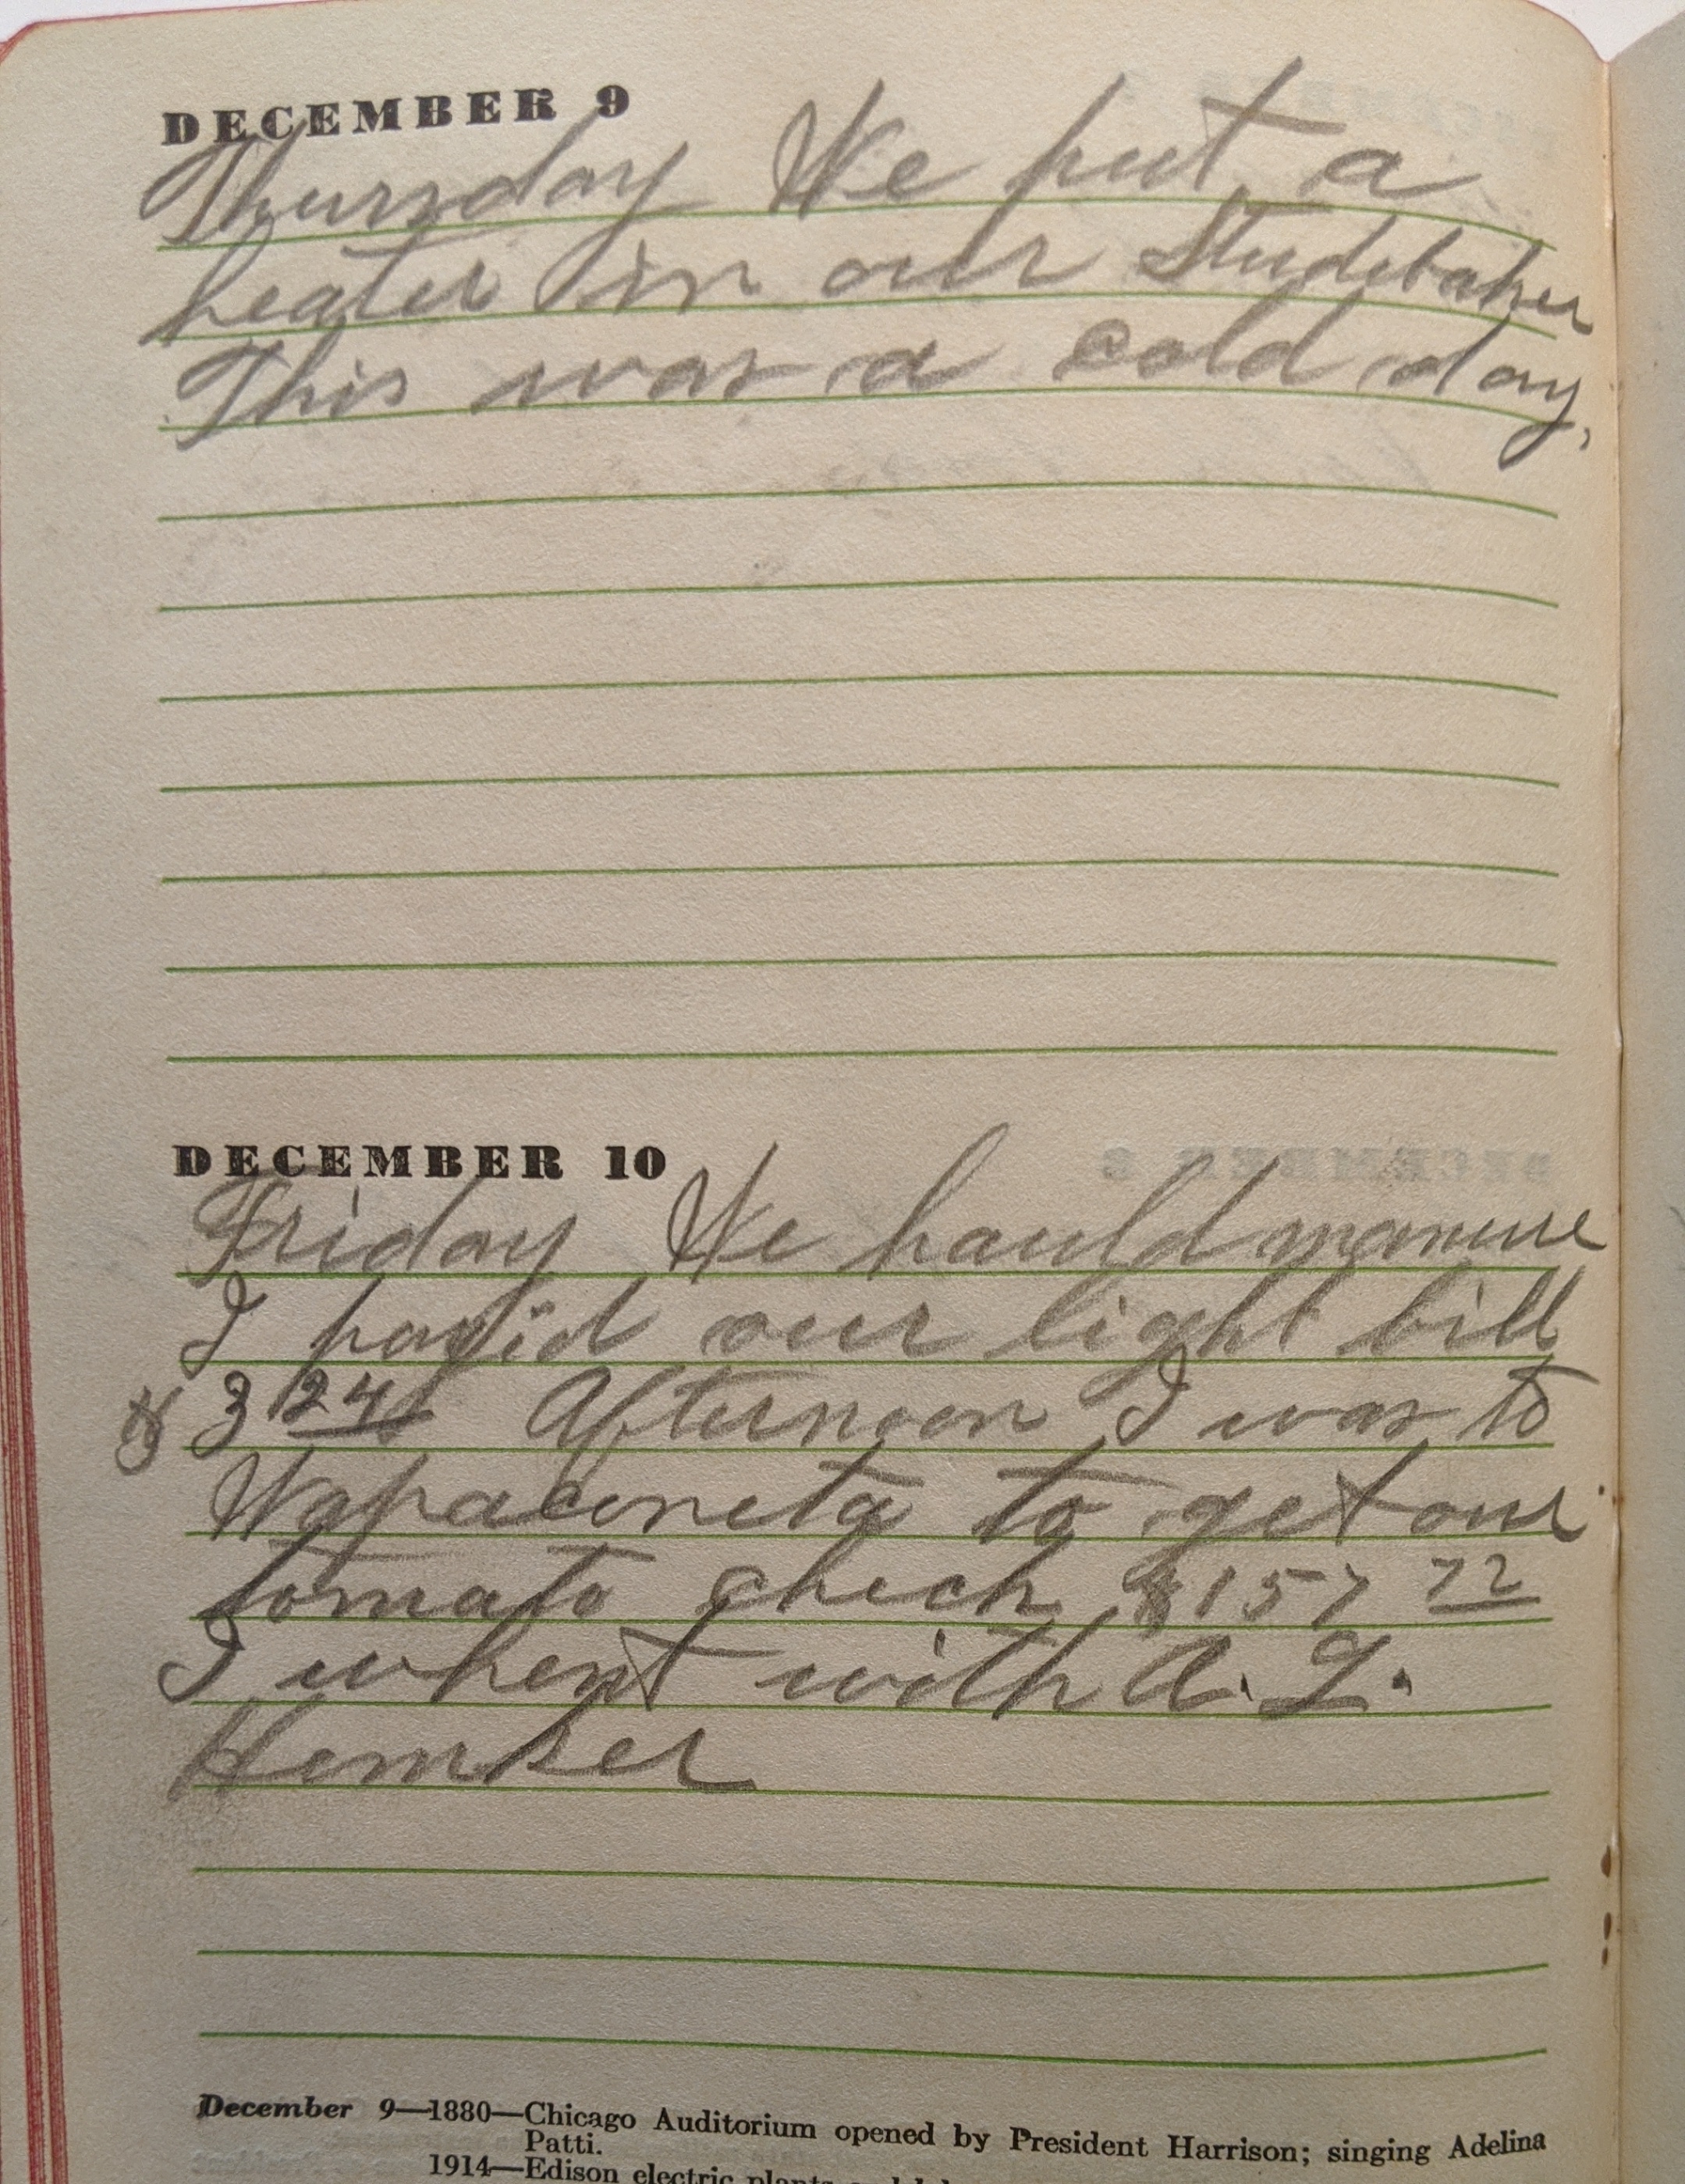 DECEMBER 9
Thursday We put a
heater in our Studebaker
This was a cold day,
DECEMBER 10
Friday We hauld manure
I payid our light bill
$3 24 Afternoon I was to
Wapaconeta to get our
tomato check $157 72
I whent with A. L.
DECEMBER 8
December 9—1880—Chicago Auditorium opened by President Harrison; singing Adelina
Patti.
1914—Edison electric plants